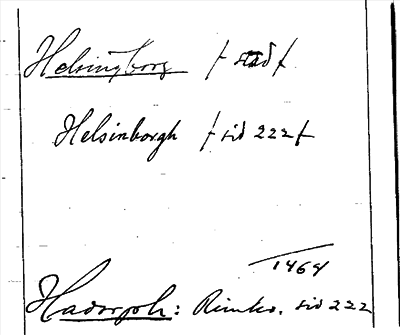 Helsingborg / stad /
Helsinborgh / sid 222 /
1464
Hadorph: Rimkr. sid 222